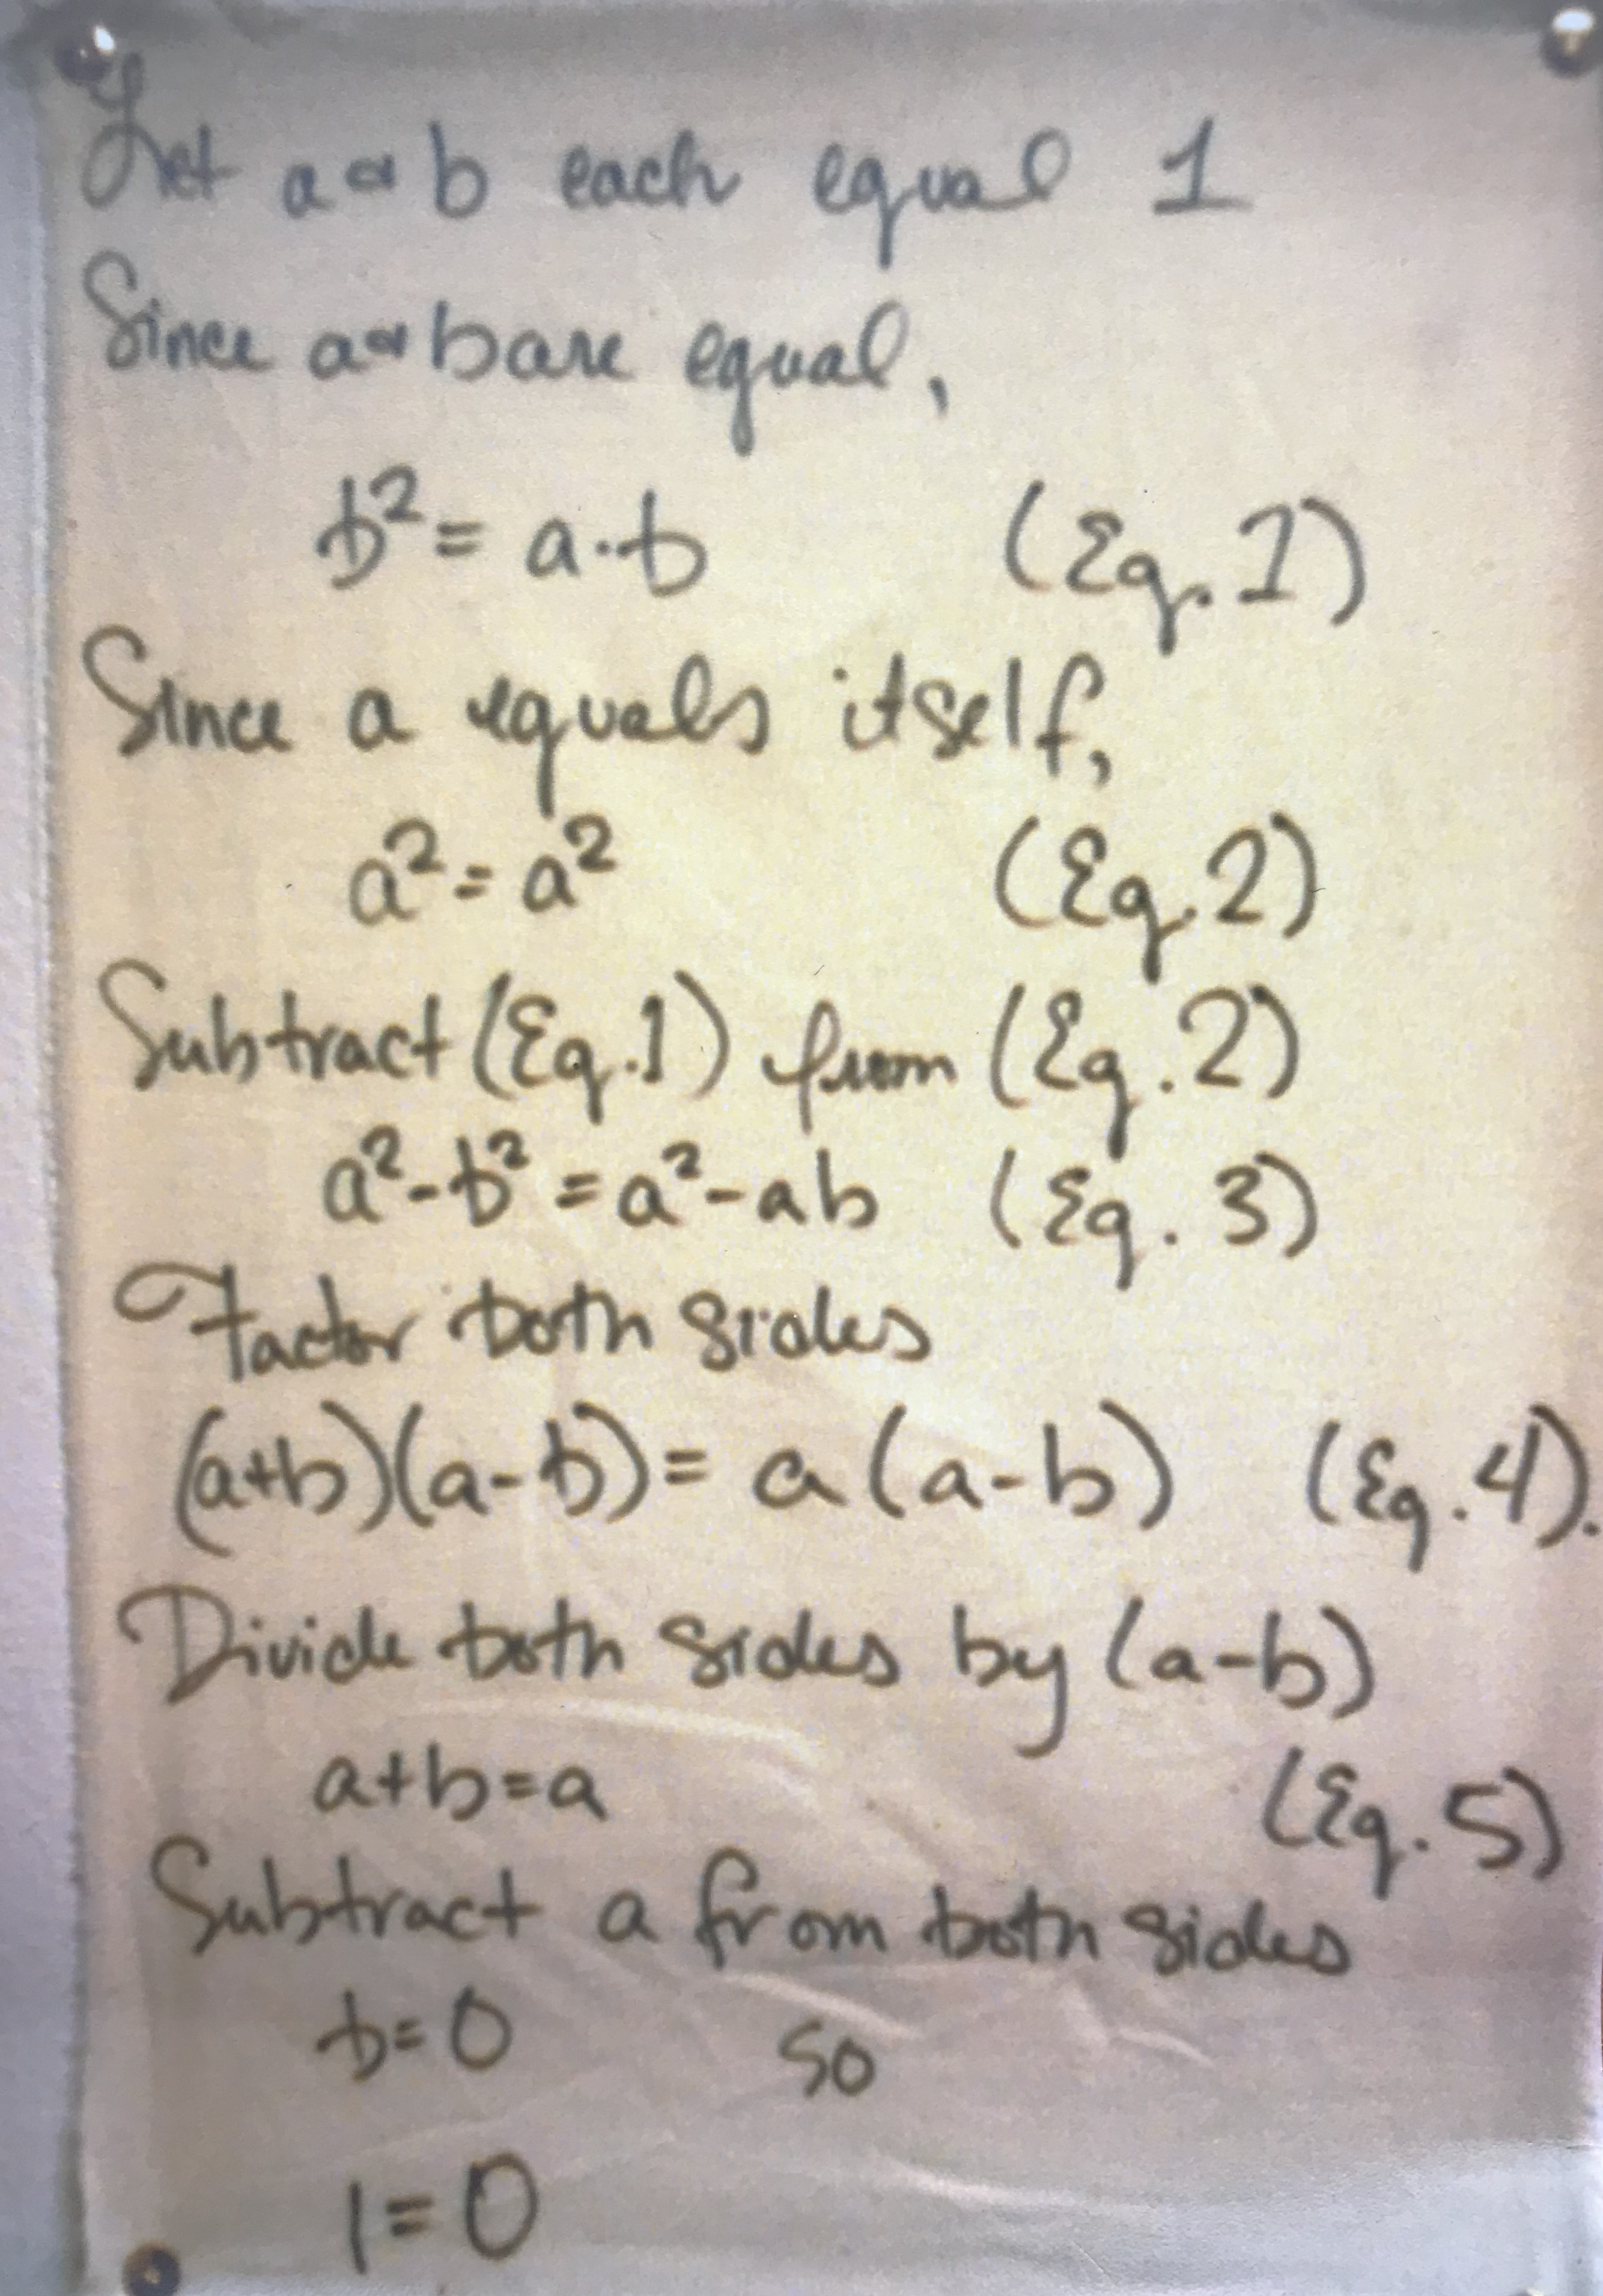 Let a & b each equal 1
Since a & b are equal,
b² = a·b (Eq. 1)
Since a equals itself,
a² = a² (Eq. 2)
Subtract (Eq. 1) from (Eq. 2)
a² - b² = a² - ab (Eq. 3)
Factor both sides
(a+b)(a-b) = a(a-b) (Eq. 4).
Divide both sides by (a-b)
a+b=a (Eq. 5)
Subtract a from both sides
b=0 so
1=0